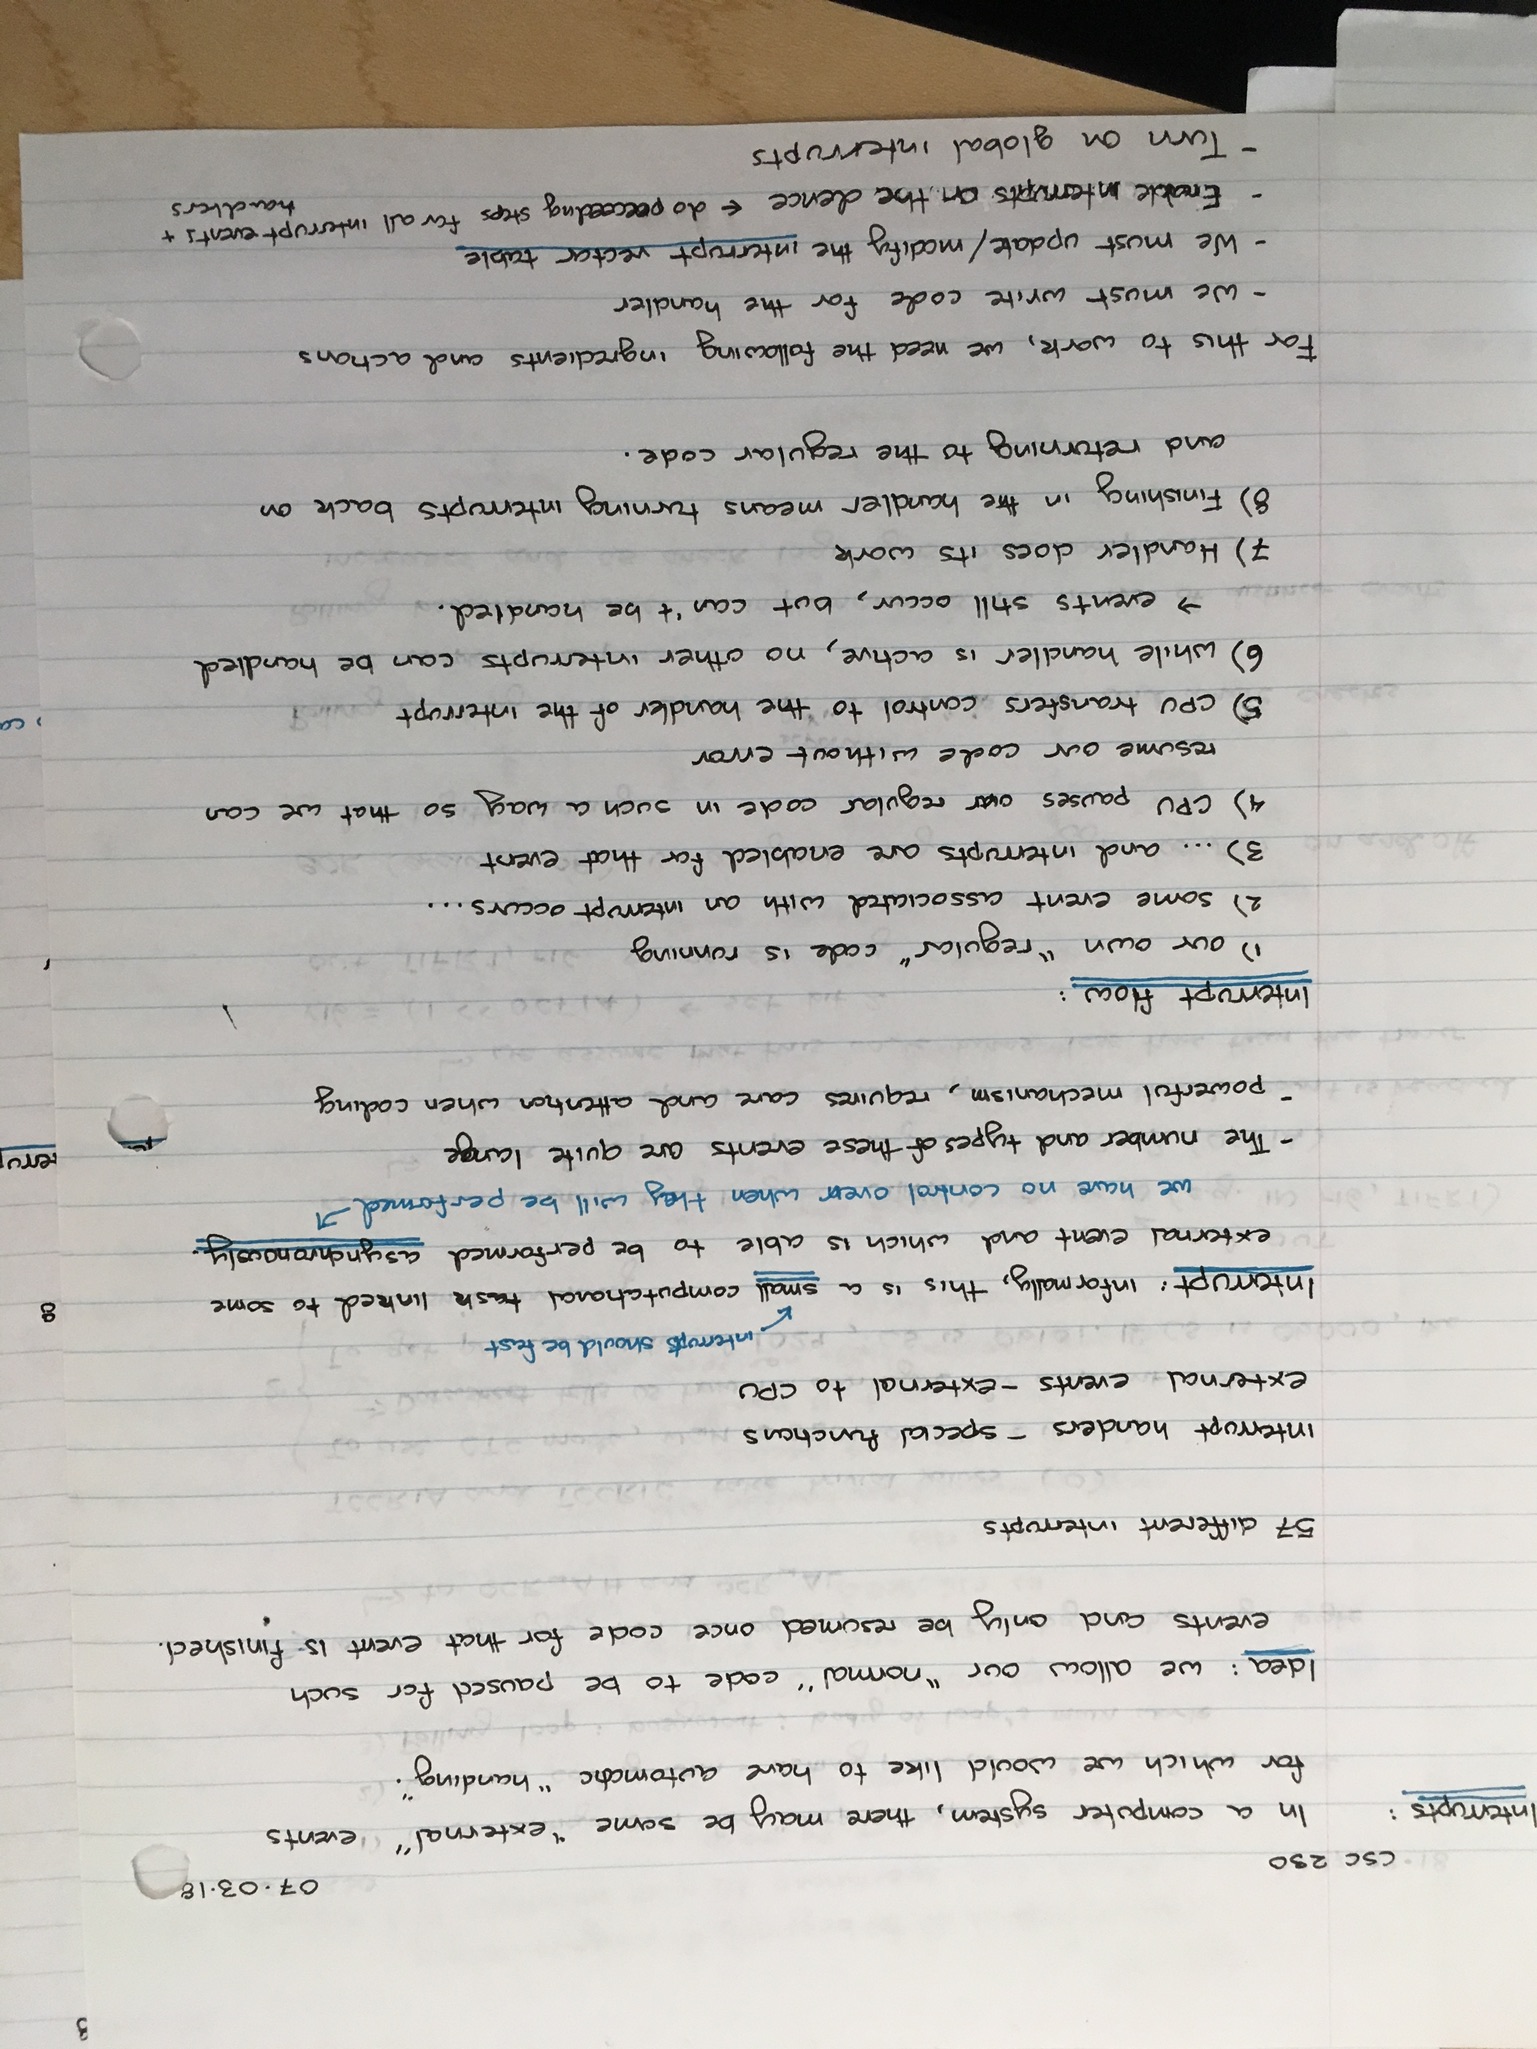 3
07.03.18
CSC 230
Interrupts: In a computer system, there may be some "external" events
for which we would like to have automatic "handing".
Idea: we allow our "normal" code to be paused for such
events and only be resumed once code for that event is finished.
57 different interrupts
interrupt handers - special functions
external events - external to CPU
interrupts should be fast
Interrupt: informally, this is a small computational task linked to some
8
external event and which is able to be performed asynchronously.
we have no control over when they will be performed
- The number and types of these events are quite large
- powerful mechanism, requires care and attention when coding
Interrupt flow:
1) our own "regular" code is running
2) some event associated with an interrupt occurs...
3) ... and interrupts are enabled for that event
4) CPU pauses our regular code in such a way so that we can
resume our code without error
5) CPU transfers control to the handler of the interrupt
6) while handler is active, no other interrupts can be handled
→ events still occur, but can't be handled.
7) Handler does its work
8) Finishing in the handler means turning interrupts back on
and returning to the regular code.
For this to work, we need the following ingredients and actions
- We must write code for the handler
- We must update/modify the interrupt vector table
- Enable interrupts on the device ← do preceeding steps for all interrupt events +
handlers
- Turn on global interrupts